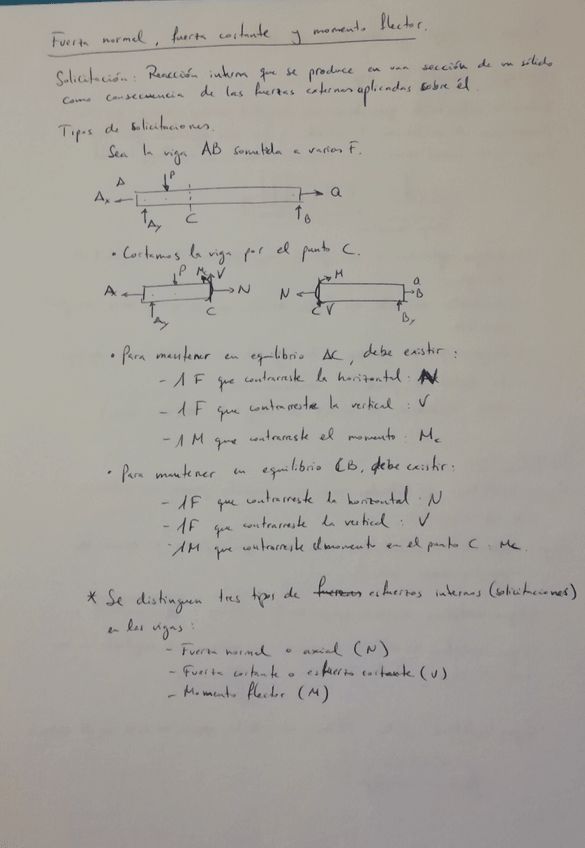 Fuerza normal, fuerza cortante y momento flector.
Solicitación: Reacción interna que se produce en una sección de un sólido
como consecuencia de las fuerzas externas aplicadas sobre él.
Tipos de solicitaciones.
Sea la viga AB sometida a varias F.
A P
Ax Q
Ay C B
• Cortamos la viga por el punto C.
P M V M Q
A N N B
Ay C C V By
• Para mantener en equilibrio AC, debe existir:
- 1 F que contrarreste la horizontal: N
- 1 F que contrarreste la vertical: V
- 1 M que contrarreste el momento: Mc
• Para mantener en equilibrio CB, debe existir:
- 1F que contrarreste la horizontal: N
- 1F que contrarreste la vertical: V
- 1M que contrarreste el momento en el punto C: Mc.
* Se distinguen tres tipos de fuerzas esfuerzos internos (solicitaciones)
en las vigas:
- Fuerza normal o axial (N)
- Fuerza cortante o esfuerzo cortante (V)
- Momento flector (M)